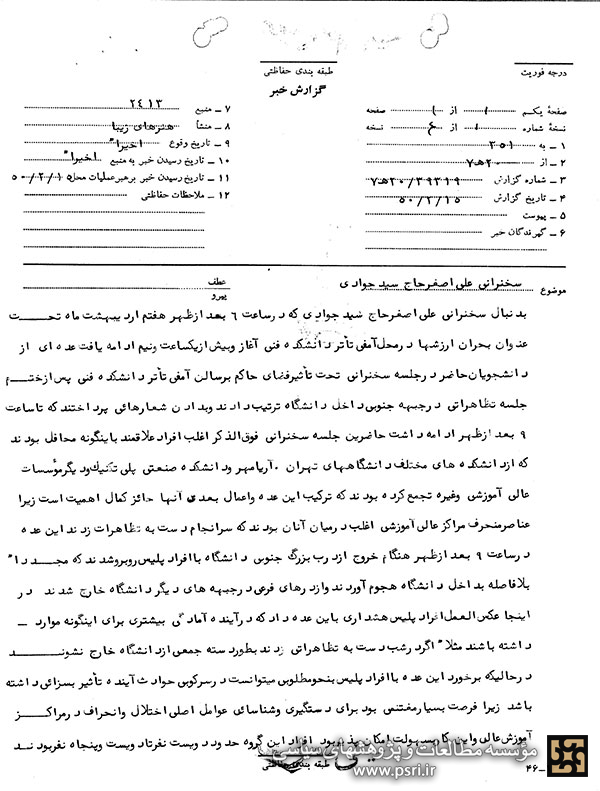 طبقه بندی حفاظتی
درجه فوریت
گزارش خبر
صفحهٔ یکم ۱ از ۱ صفحه
نسخهٔ شماره ۱ از ۴ نسخه
۱ ـ به ۳۵۱
۲ ـ از ۲۰هـ۷
۳ ـ شماره گزارش ۳۹۳۱۹/۲۰هـ۷
۴ ـ تاریخ گزارش ۵۰/۲/۱۵
۵ ـ پیوست
۶ ـ گیرندگان خبر
۷ ـ منبع ۲۴۱۳
۸ ـ منشأ هنرهای زیبا
۹ ـ تاریخ وقوع اخیرا"
۱۰ ـ تاریخ رسیدن خبر به منبع اخیرا"
۱۱ ـ تاریخ رسیدن خبر برهبر عملیات محل ۵۰/۲/۱۵
۱۲ ـ ملاحظات حفاظتی
موضوع سخنرانی علی اصغر حاج سید جوادی
عطف
پیرو
بدنبال سخنرانی علی اصغر حاج سید جوادی که در ساعت ۶ بعد از ظهر هفتم اردیبهشت ماه تحت
عنوان بحران ارزشها در محل آمفی تآتر دانشکده فنی آغاز وبیش از یکساعت ونیم ادامه یافت عده ای از
دانشجویان حاضر در جلسه سخنرانی تحت تأثیر فضای حاکم بر سالن آمفی تأتر دانشکده فنی پس از ختم
جلسه تظاهراتی در جبهه جنوبی داخل دانشگاه ترتیب دادند وبدادن شعارهائی پرداختند که تا ساعت
۹ بعد از ظهر ادامه داشت حاضرین جلسه سخنرانی فوق الذکر اغلب افراد علاقمند باینگونه محافل بودند
که از دانشکده های مختلف دانشگاههای تهران ۰ آریامهر ودانشکده صنعتی پلی تکنیک ودیگر مؤسسات
عالی آموزشی وغیره تجمع کرده بودند که ترکیب این عده واعمال بعدی آنها حائز کمال اهمیت است زیرا
عناصر منحرف مراکز عالی آموزشی اغلب در میان آنان بودند که سرانجام دست به تظاهرات زدند این عده
در ساعت ۹ بعد از ظهر هنگام خروج از درب بزرگ جنوبی دانشگاه با افراد پلیس روبرو شدند که مجددا"
بلافاصله بداخل دانشگاه هجوم آوردند واز درهای فرعی در جبهه های دیگر دانشگاه خارج شدند در
اینجا عکس العمل افراد پلیس هشداری باین عده داد که در آینده آمادگی بیشتری برای اینگونه موارد ـ
داشته باشند مثلا" اگر در شب دست به تظاهراتی زدند بطور دسته جمعی از دانشگاه خارج نشوند
در حالیکه برخورد این عده با افراد پلیس بنحو مطلوبی میتوانست در سرکوبی حوادث آینده تأثیر بسزائی داشته
باشد زیرا فرصت بسیار مغتنمی بود برای دستگیری وشناسائی عوامل اصلی اختلال وانحراف در مراکز
آموزش عالی واین کار بسهولت امکان پذیر بود افراد این گروه حدود دویست نفر تا دویست وپنجاه نفر بودند
طبقه بندی حفاظتی
۴۶ـ
مؤسسه مطالعات و پژوهشهای سیاسی
www.psri.ir